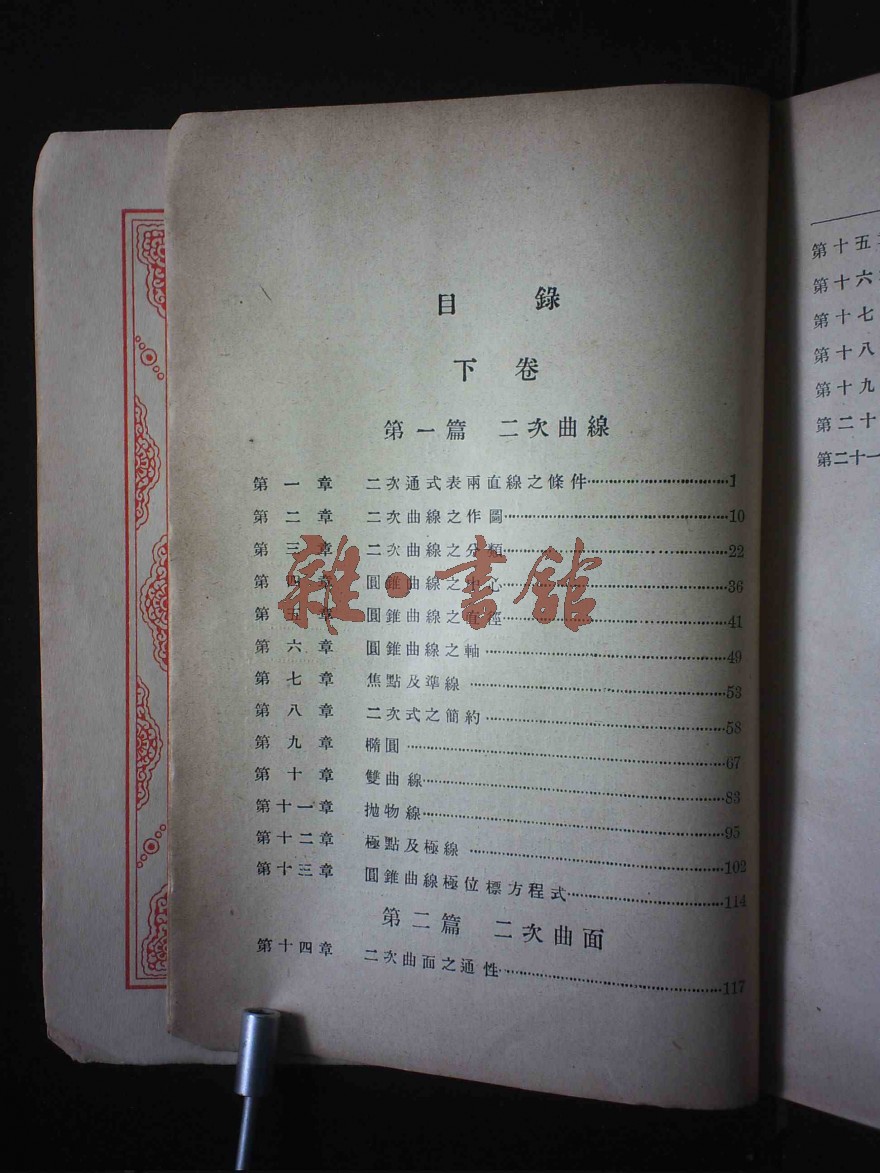 目錄
下卷
第一篇 二次曲線
第一章 二次通式表兩直線之條件 1
第二章 二次曲線之作圖 10
第三章 二次曲線之分類 22
第四章 圓錐曲線之中心 36
第五章 圓錐曲線之直徑 41
第六章 圓錐曲線之軸 49
第七章 焦點及準線 53
第八章 二次式之簡約 58
第九章 橢圓 67
第十章 雙曲線 83
第十一章 拋物線 95
第十二章 極點及極線 102
第十三章 圓錐曲線極位標方程式 114
第二篇 二次曲面
第十四章 二次曲面之通性 117
雜·書館
第十五
第十六
第十七
第十八
第十九
第二十
第二十一